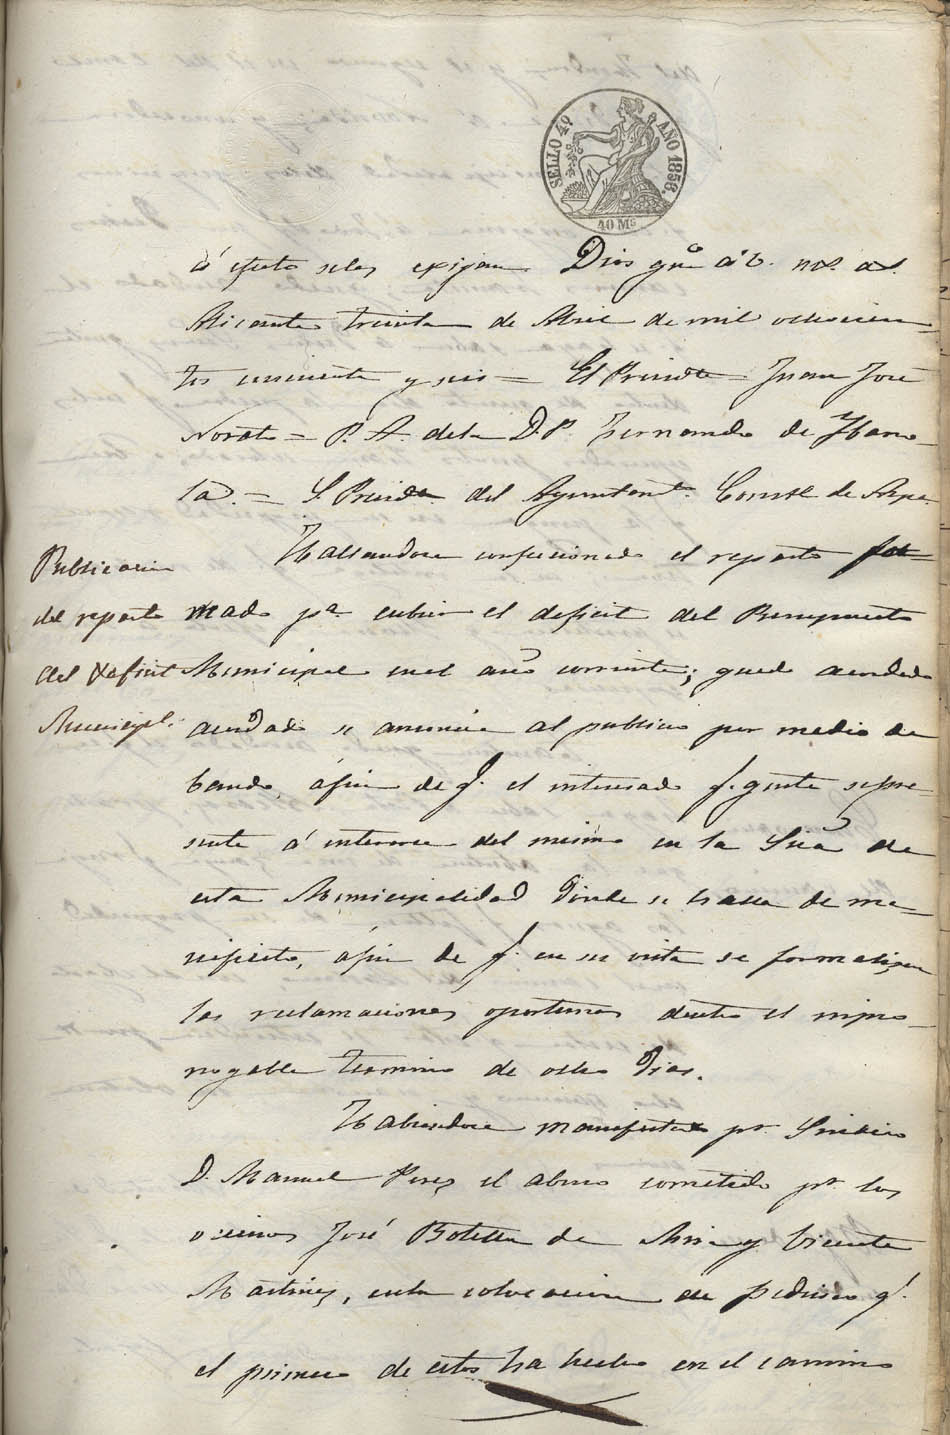 SELLO 4º AÑO 1856.
40 Ms
á efecto se les exijan. Dios gue á V. ms. as.
Alicante treinta de Abril de mil ochocien-
tos cincuenta y seis = El Presidte = Juan José
Norato = P. A. de la D. P. Fernando de Ybarro-
la = S. Presidte del Ayuntamt. Constl de Aspe.
Hallandose confeccionado el reparto for-
Publicacion
del reparto
del deficit
Municipl.
mado pa. cubrir el deficit del Presupuesto
Municipal en el año corriente; quedo acordado
acordado se anuncie al publico por medio de
bando, á fin de q. el interesado q. guste se pre-
sente á enterarse del mismo en la Sria de
esta Municipalidad donde se halla de ma-
nifiesto, á fin de q. en su vista se formalicen
las reclamaciones oportunas dentro el impro-
rogable termino de ocho dias.
Habiendose manifestado pr. Sindico
D. Manuel Perez el abuso cometido pr. los
vecinos José Botella de Asin y Vicente
Martinez, en la colocacion de pedrisco q.
el primero de estos ha hecho en el camino